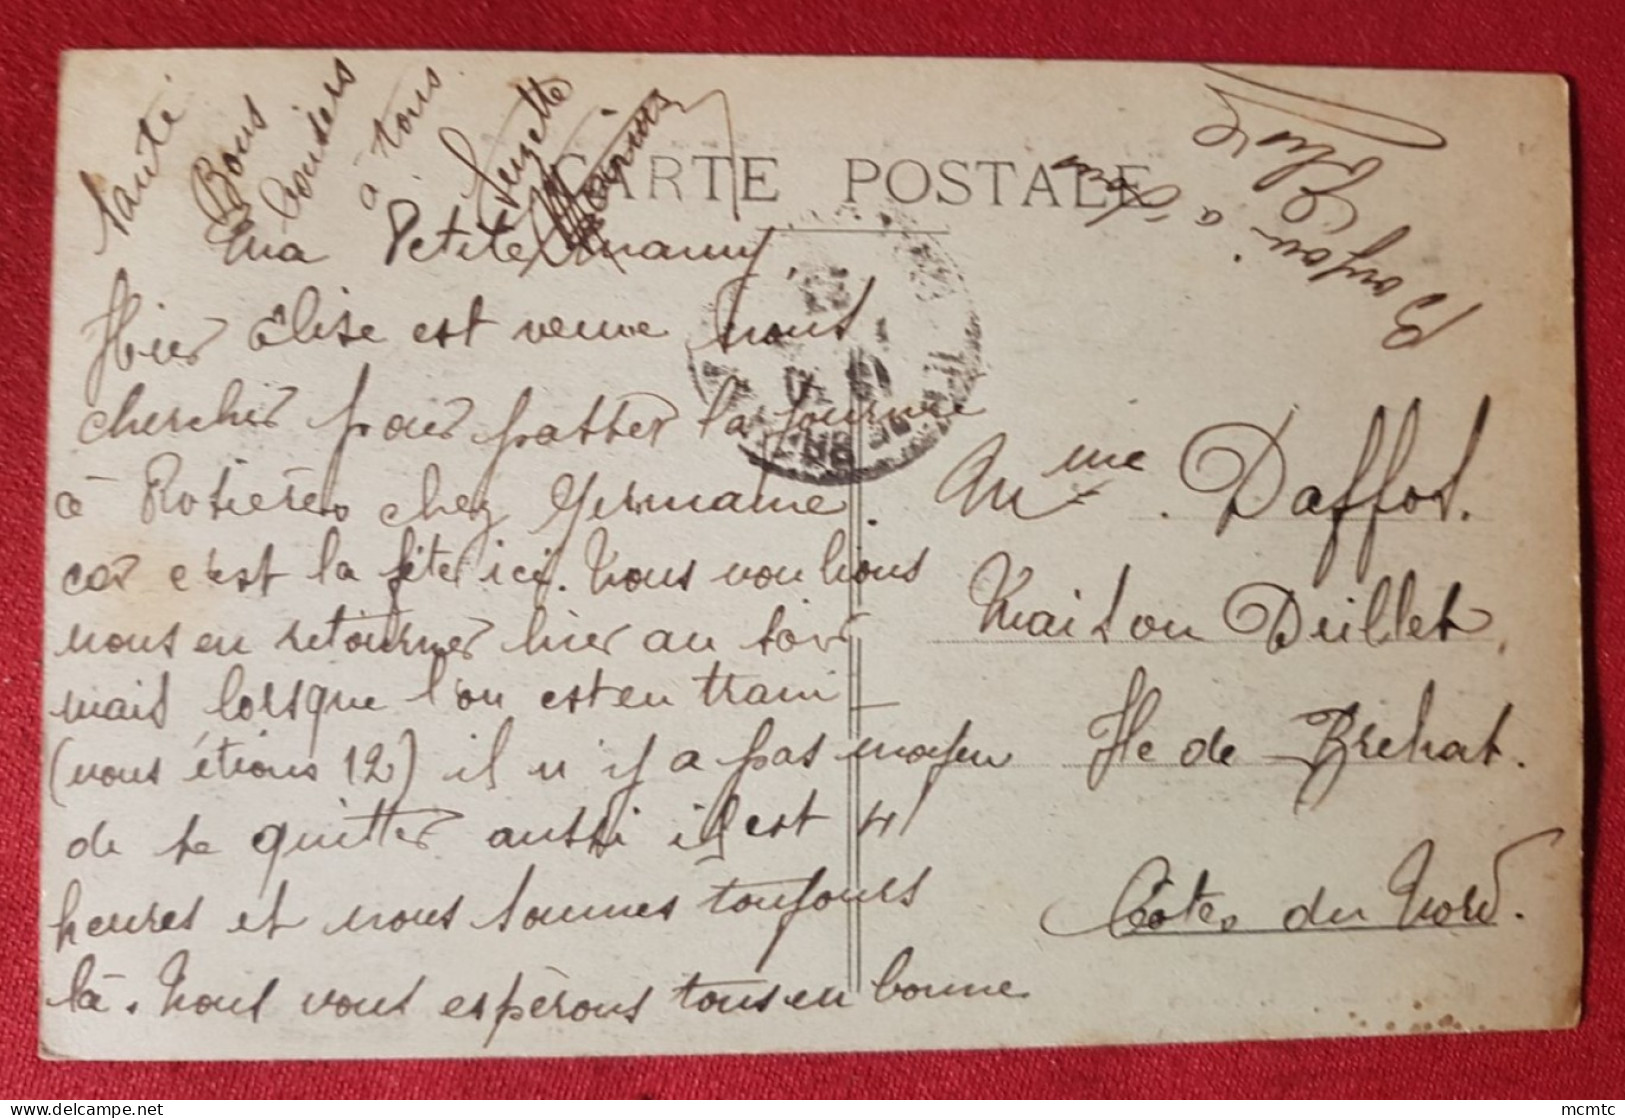 CARTE POSTALE
ma Petite mamy,
Hier Elise est venue nous
chercher pour passer la journée
à Rosières chez Germaine.
car c'est la fête ici. Nous voulions
nous en retourner hier au soir
mais lorsque l'on est en train
(nous étions 12) il n'y a pas moyen
de se quitter aussi il est 4
heures et nous sommes toujours
là. Nous vous espérons tous en bonne
santé
Bons
baisers
à tous
Suzette
Bonjour à
Mme. Daffos.
Maison Deillet,
Ile de Brehat.
Côtes du Nord.
mcmtc